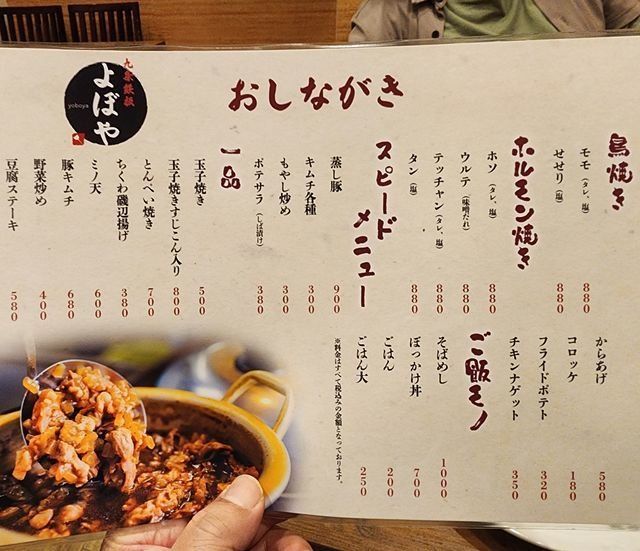 おしながき
九条鉄板
よぼや
yoboya
鳥焼き
モモ（タレ、塩） 880
せせり（塩） 880
ホルモン焼き
ホソ（タレ、塩） 880
ウルテ（味噌だれ） 880
テッチャン（タレ、塩） 880
タン（塩） 880
スピードメニュー
蒸し豚 900
キムチ各種 300
もやし炒め 300
ポテサラ（しば漬け） 380
一品
玉子焼き 500
玉子焼きすじこん入り 800
とんぺい焼き 700
ちくわ磯辺揚げ 380
ミノ天 600
豚キムチ 680
野菜炒め 400
豆腐ステーキ 580
からあげ 580
コロッケ 180
フライドポテト 320
チキンナゲット 350
ご飯モノ
そばめし 1000
ぼっかけ丼 700
ごはん 200
ごはん大 250
※料金はすべて税込みの金額となっております。